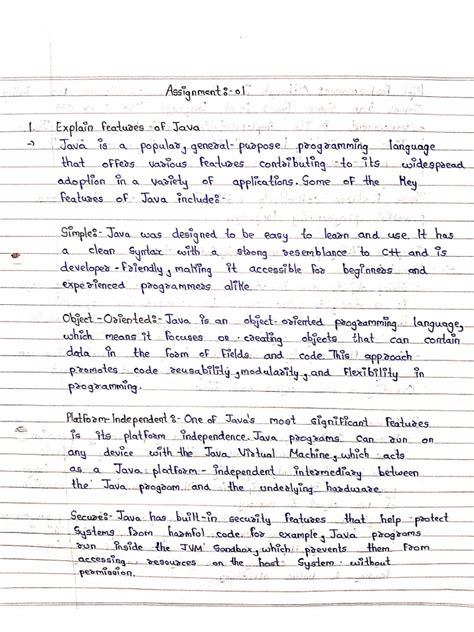 Assignment:-01
1. Explain features of Java
→ Java is a popular, general-purpose programming language
that offers various features contributing to its widespread
adoption in a variety of applications. Some of the Key
features of Java include:-
Simple:- Java was designed to be easy to learn and use. It has
a clean syntax with a strong resemblance to C++ and is
developer-friendly, making it accessible for beginners and
experienced programmers alike.
Object-Oriented:- Java is an object-oriented programming language,
which means it focuses on creating objects that can contain
data in the form of fields and code. This approach
promotes code reusability, modularity, and flexibility in
programming.
Platform-Independent:- One of Java's most significant features
is its platform independence. Java programs can run on
any device with the Java Virtual Machine, which acts
as a Java platform-independent intermediary between
the Java program and the underlying hardware.
Secure:- Java has built-in security features that help protect
systems from harmful code. for example, Java programs
run inside the JVM Sandbox, which prevents them from
accessing resources on the host System without
permission.